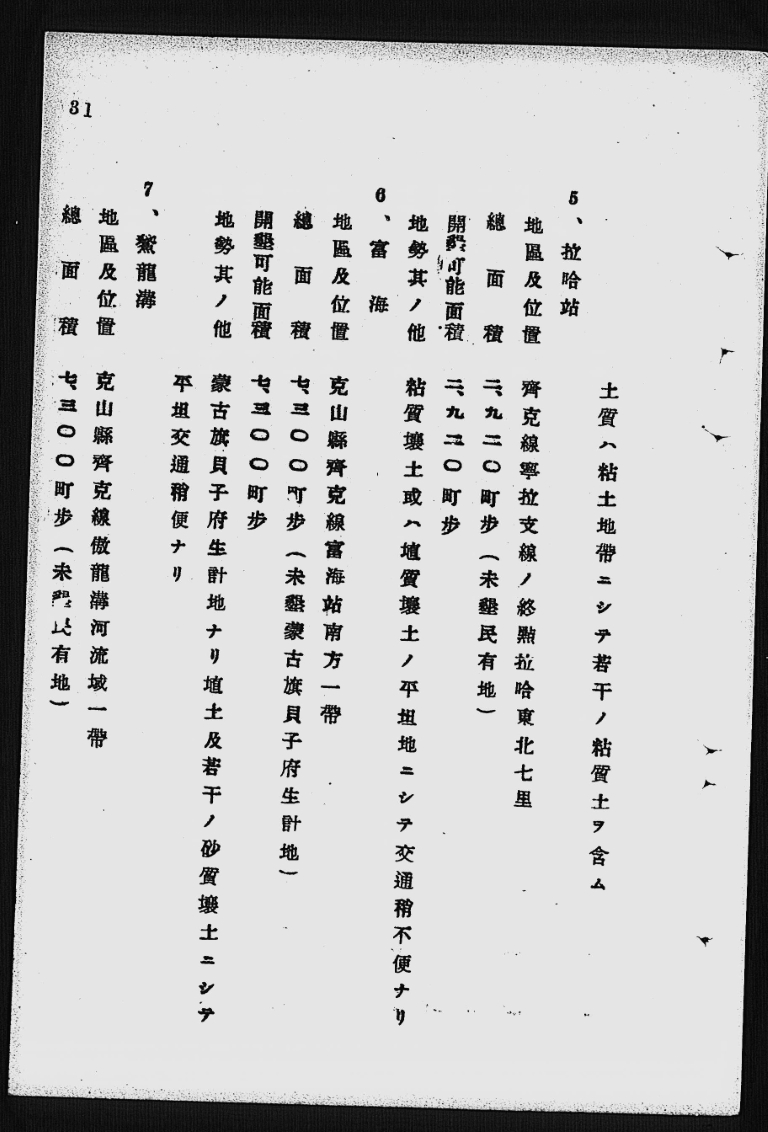 31
土質ハ粘土地帶ニシテ若干ノ粘質土ヲ含ム
5、拉哈站
地區及位置 齊克線寧拉支線ノ終點拉哈東北七里
總面積 二、九二〇町步(未墾民有地)
開墾可能面積 二、九二〇町步
地勢其ノ他 粘質壤土或ハ埴質壤土ノ平坦地ニシテ交通稍不便ナリ
6、富海
地區及位置 克山縣齊克線富海站南方一帶
總面積 七、三〇〇町步(未墾蒙古旗貝子府生計地)
開墾可能面積 七、三〇〇町步
地勢其ノ他 蒙古旗貝子府生計地ナリ埴土及若干ノ砂質壤土ニシテ
平坦交通稍便ナリ
7、龍溝
地區及位置 克山縣齊克線傲龍溝河流域一帶
總面積 七、三〇〇町步(未墾民有地)